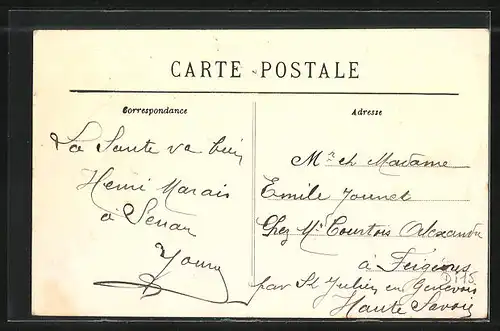 CARTE POSTALE
Correspondance
La Sante va bien
Henri Marais
à Senan
Adresse
Mr et Madame
Emile Jounet
Chez Mr Courtois Alexandre
à Feigères
par St Julien en Genevois
Haute Savoie